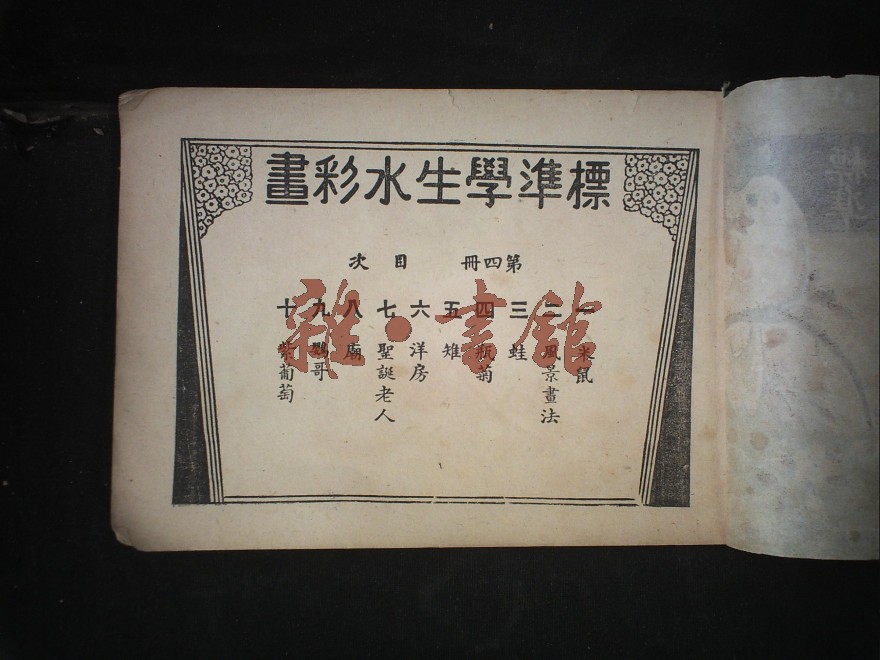 標準學生水彩畫
第四冊 目次
一 米鼠
二 風景畫法
三 蛙
四 瓶菊
五 雉
六 洋房
七 聖誕老人
八 廟
九 鸚哥
十 紫葡萄
雜·書館
標準